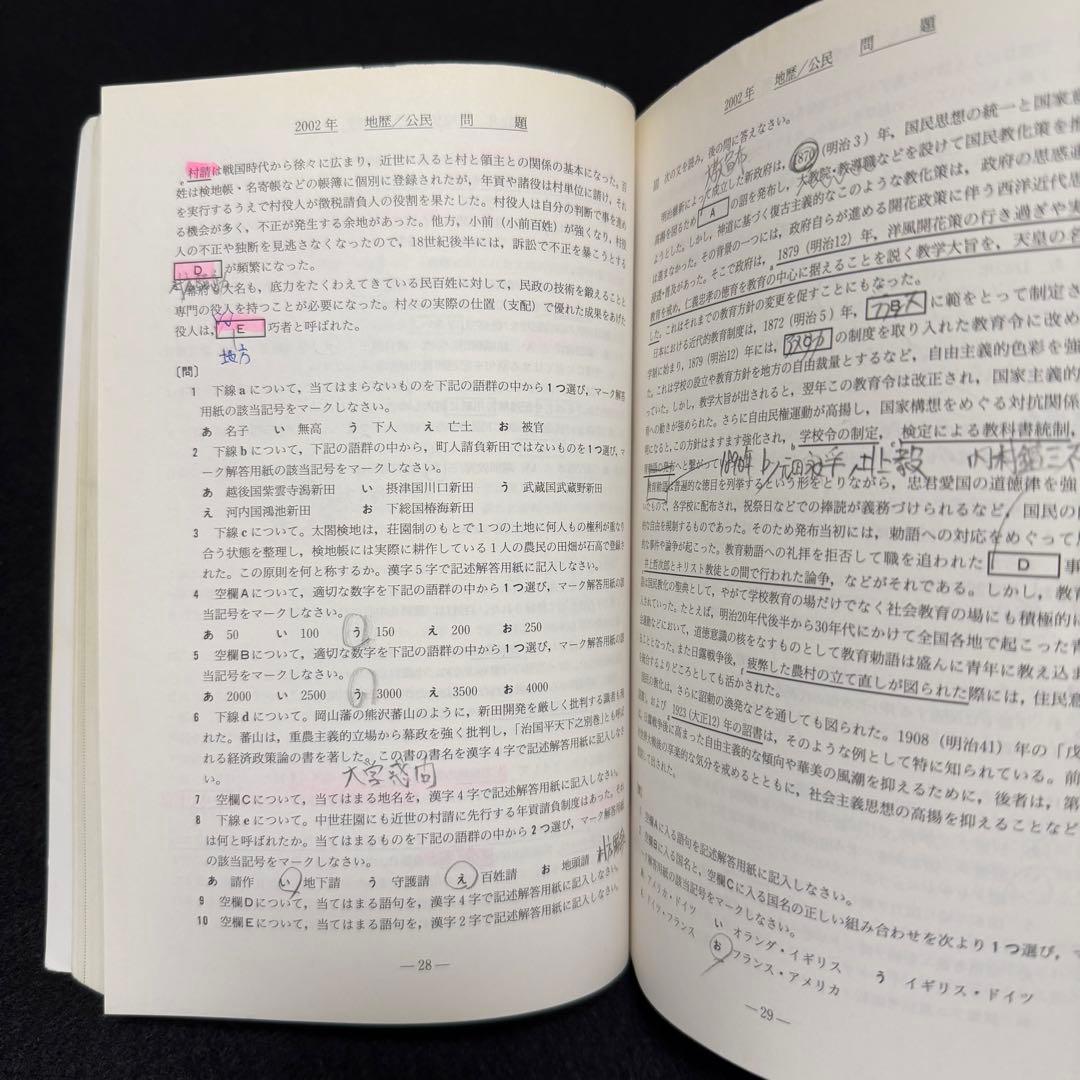 2002年 地歴/公民 問 題
e村請は戦国時代から徐々に広まり，近世に入ると村と領主との関係の基本になった。百
姓は検地帳・名寄帳などの帳簿に個別に登録されたが，年貢や諸役は村単位に請け，それ
を実行するうえで村役人が徴税請負人の役割を果たした。村役人は自分の判断で事を進め
る機会が多く，不正が発生する余地があった。他方，小前（小前百姓）が強くなり，村役
人の不正や独断を見逃さなくなったので，18世紀後半には，訴訟で不正を暴こうとする
D が頻繁になった。
幕府も大名も，底力をたくわえてきている民百姓に対して，民政の技術を鍛えることと
専門の役人を持つことが必要になった。村々の実際の仕置（支配）で優れた成果をあげた
役人は， E 巧者と呼ばれた。
地方
〔問〕
1 下線aについて，当てはまらないものを下記の語群の中から1つ選び，マーク解答
用紙の該当記号をマークしなさい。
あ 名子 い 無高 う 下人 え 亡土 お 被官
2 下線bについて，下記の語群の中から，町人請負新田ではないものを1つ選び，マ
ーク解答用紙の該当記号をマークしなさい。
あ 越後国紫雲寺潟新田 い 摂津国川口新田 う 武蔵国武蔵野新田
え 河内国鴻池新田 お 下総国椿海新田
3 下線cについて．太閤検地は，荘園制のもとで1つの土地に何人もの権利が重なり
合う状態を整理し，検地帳には実際に耕作している1人の農民の田畑が石高で登録さ
れた。この原則を何と称するか。漢字5字で記述解答用紙に記入しなさい。
4 空欄Aについて，適切な数字を下記の語群の中から1つ選び，マーク解答用紙の該
当記号をマークしなさい。
あ 50 い 100 う 150 え 200 お 250
5 空欄Bについて，適切な数字を下記の語群の中から1つ選び，マーク解答用紙の該
当記号をマークしなさい。
あ 2000 い 2500 う 3000 え 3500 お 4000
6 下線dについて．岡山藩の熊沢蕃山のように，新田開発を厳しく批判する識者も現
れた。蕃山は，重農主義的立場から幕政を強く批判し，「治国平天下之別巻」とも呼ば
れる経済政策論の書を著した。この書の書名を漢字4字で記述解答用紙に記入しなさ
い。
大学惑問
7 空欄Cについて，当てはまる地名を，漢字4字で記述解答用紙に記入しなさい。
8 下線eについて．中世荘園にも近世の村請に先行する年貢請負制度はあった。それ
は何と呼ばれたか。当てはまるものを下記の語群の中から2つ選び，マーク解答用紙
の該当記号をマークしなさい。
あ 請作 い 地下請 う 守護請 え 百姓請 お 地頭請
9 空欄Dについて，当てはまる語句を，漢字4字で記述解答用紙に記入しなさい。
10 空欄Eについて，当てはまる語句を，漢字2字で記述解答用紙に記入しなさい。
—28—
2002年 地歴/公民 問 題
次の文を読み，後の問に答えなさい。
明治維新によって成立した新政府は，1870（明治3）年，国民思想の統一と国家意
高揚を図るため A の詔を発布し，大教院・教導職などを設けて国民教化策を推
ようとした。しかし，神道に基づく復古主義的なこのような教化策は，政府の思惑通
は進まなかった。その背景の一つには，政府自らが進める開花政策に伴う西洋近代思
浸透・普及があった。そこで政府は，1879（明治12）年，洋風開花策の行き過ぎや実
教育を戒め，仁義忠孝の徳育を教育の中心に据えることを説く教学大旨を，天皇の名
した。これはそれまでの教育方針の変更を促すことにもなった。
日本における近代的教育制度は，1872（明治5）年， に範をとって制定さ
学制に始まり，1879（明治12）年には， の制度を取り入れた教育令に改め
た。これは学校の設立や教育方針を地方の自由裁量とするなど，自由主義的色彩を強
っていた。しかし，教学大旨が出されると，翌年この教育令は改正され，国家主義的
育への動きが強められた。さらに自由民権運動が高揚し，国家構想をめぐる対抗関係
明になると，この方針はますます強化され，b学校令の制定，c検定による教科書統制，
教育勅語の発布へと繋がって
1890年 元田永孚 井上毅
教育勅語は普遍的な徳目を列挙するという形をとりながら，忠君愛国の道徳律を強
いたもので，各学校に配布され，祝祭日などでの捧読が義務づけられるなど，国民の
的な自由を規制するものであった。そのため発布当初には，勅語への対応をめぐって
的な事件や論争が起こった。教育勅語への礼拝を拒否して職を追われた D 事
井上哲次郎とキリスト教徒との間で行われた論争，などがそれである。しかし，教育
語は国民教化の聖典として，やがて学校教育の場だけでなく社会教育の場にも積極的に
入れていった。たとえば，明治20年代後半から30年代にかけて全国各地で起こった青
会運動などにおいて，道徳意識の核をなすものとして教育勅語は盛んに青年に教え込ま
ることとなった。また日露戦争後，f疲弊した農村の立て直しが図られた際には，住民意
を統合するよりどころとしても活かされた。
国民の教化は，さらに詔勅の渙発などを通しても図られた。1908（明治41）年の「戊
詔書」，および 1923（大正12）年の詔書は，そのような例として特に知られている。前
は，日露戦争後に高まった自由主義的な傾向や華美の風潮を抑えるために，後者は，第
次世界大戦後の享楽的な気分を戒めるとともに，社会主義思想の高揚を抑えることなど
目的として出された。
空欄Aに入る語句を記述解答用紙に記入しなさい。
空欄Bに入る国名と，空欄Cに入る国名の正しい組み合わせを次より1つ選び，マ
ーク解答用紙の該当記号をマークしなさい。
あ アメリカ・ドイツ い オランダ・イギリス う イギリス・ドイツ
え ドイツ・フランス お フランス・アメリカ
—29—